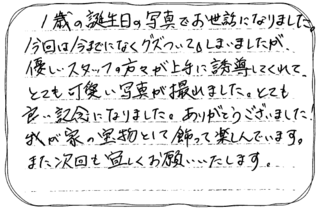 1歳の誕生日の写真でお世話になりました。
今回は今までになくグズついてしまいましたが、
優しいスタッフの方々が上手に誘導してくれて、
とても可愛い写真が撮れました。とても
良い記念になりました。ありがとうございました!
我が家の宝物として飾って楽しんでいます。
また次回も宜しくお願いいたします。